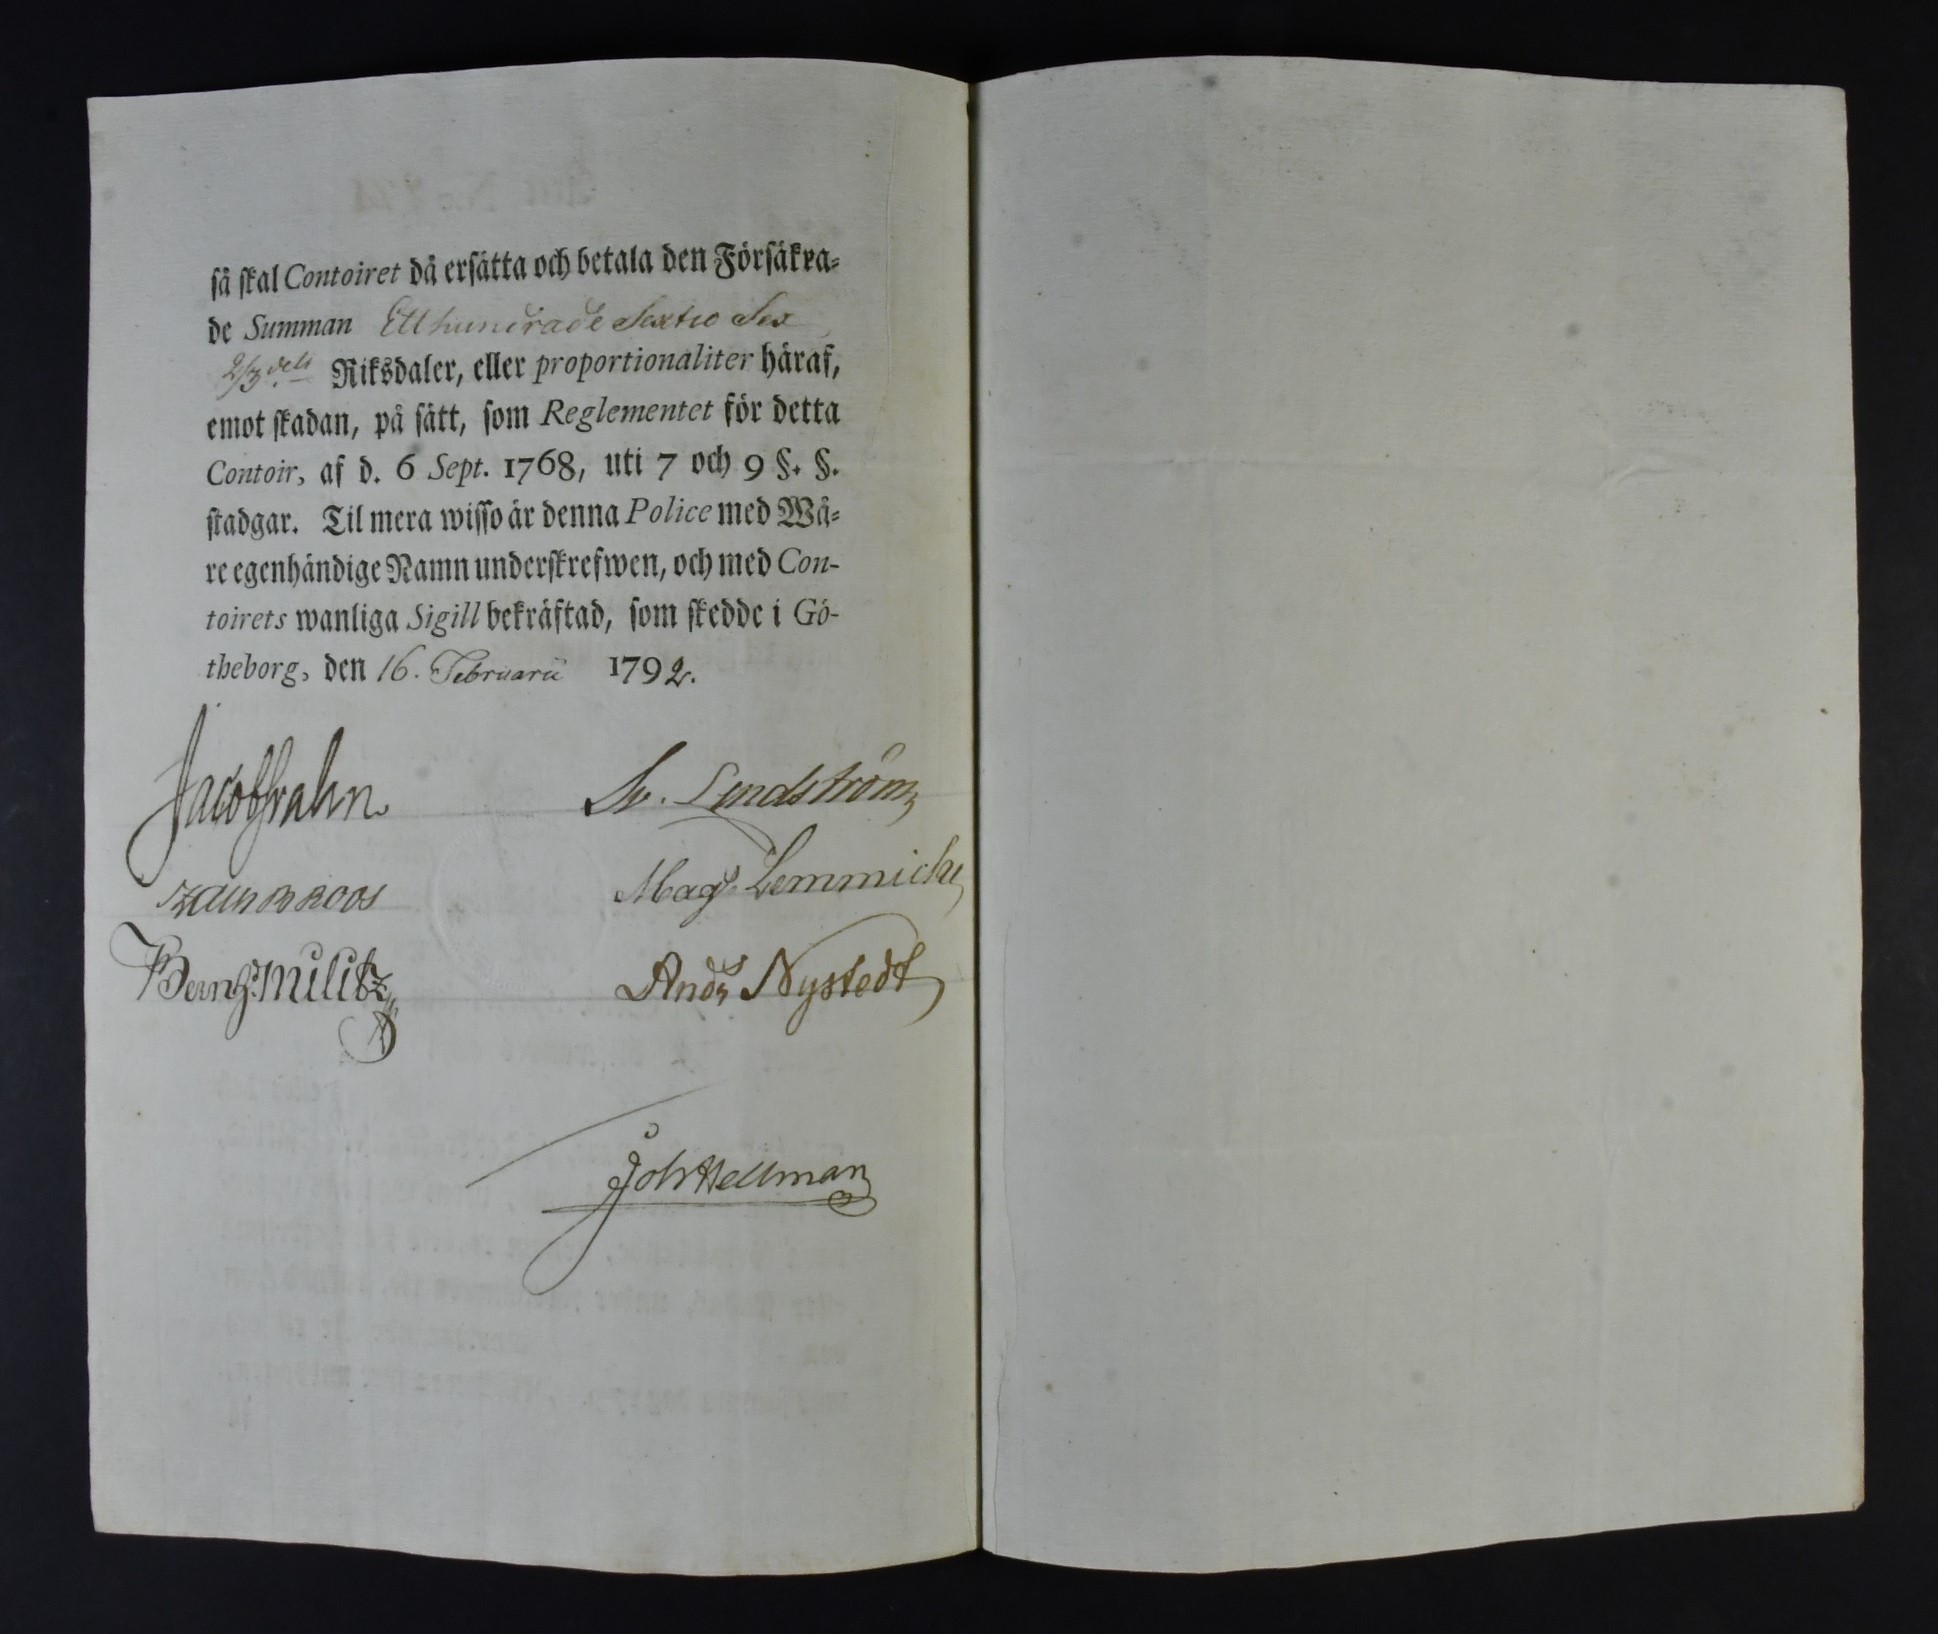 så skal Contoiret då ersätta och betala den Försäkra-
de Summan Ett hundrade Sextio Sex
2/3 dels Riksdaler, eller proportionaliter häraf,
emot skadan, på sätt, som Reglementet för detta
Contoir, af d. 6 Sept. 1768, uti 7 och 9 §. §.
stadgar. Til mera wisso är denna Police med Wå-
re egenhändige Namn underskrefwen, och med Con-
toirets wanliga Sigill bekräftad, som skedde i Gö-
theborg, den 16. Februarii 1792.
Jacob Frahn
Sv. Lindström
Mags Lemmicke
Bernh. Militz
Andrs Nystedt
Joh Hellman